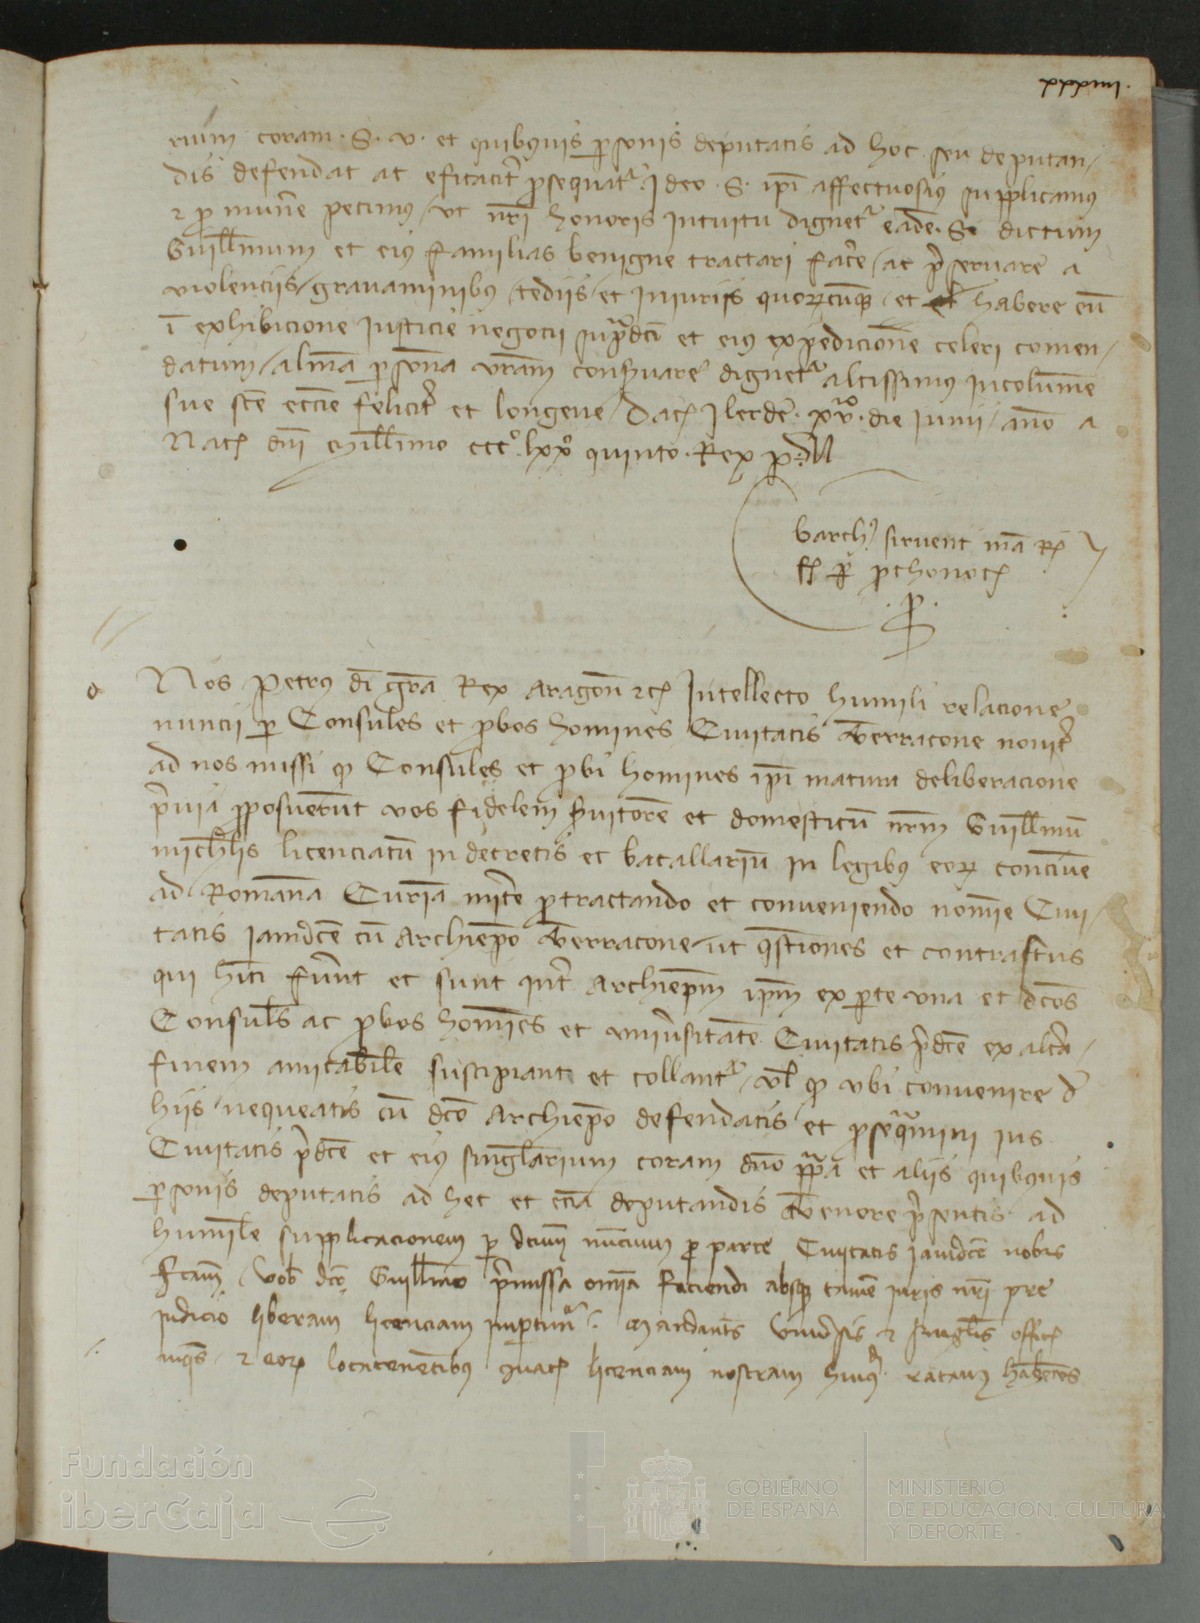 xxxiiii.
rium coram · S · v · et quibusuis psonis deputatis ad hoc seu deputan/
dis defendat ac eficacit psequat Ideo · S · ipi affectuosius supplicamus
⁊ p mune petimus / ut nri honoris intuitu dignet eade · S · dictum
Guillmum et eius familias benigne tractari face / ac pservare a
violenciis / gravaminibus / tediis / et iniuriis quorcuq / et habere eu
i exhibicione iusticie negocii supdci et eius expedicione celeri comen/
datum / alma psona vram conservare dignet altissimus incolume
sue sce eccie felicit et longeve / Dat Ilerde · xv · die Iunii / ano a
Nat dni millimo ccc lxx quinto · Rex p
barth siruent
pthonot
p
Nos Petrus di gra Rex Aragon ⁊c Intellecto humili relacione
nuncii p Consules et pbos homines Civitatis Terracone novit
ad nos missi q Consules et pbi homines ipi matura deliberacione
pvia pposuerunt vos fidelem svitore et domesticu nrm Guillmu
michlis licenciatu in decretis et batallariu in legibus eor concive
ad Romana Curia mite ptractando et conveniendo nomie Civi/
tatis iamdce cu Archiepo Terracone ut qstiones et contrastus
qui hiti funt et sunt int Archiepm ipm ex pte una et dcos
Consuls ac pbos homies et univsitate Civitatis pdce ex alta /
finem amicabile suscipiant et tollant / vl q ubi convenire d
hiis / nequeatis cu dco Archiepo defendatis et psequamini ius
Civitatis pdce et eius singlarium coram dno ppa et aliis quibusuis
psonis deputatis ad hec et ecia deputandis Tenore psentis ad
humile supplicacionem p dcum nuncium p parte Civitatis iamdce nobis
fcam / Vob dco Guillmo pmissa omia faciendi absq tame iuris nri pre
iudicio liberam licenciam impertim · mandants Univsis ⁊ singlis offic
⁊ eor locatenetibus licenciam nostram ratam habetes
Fundación
iberCaja
GOBIERNO
DE ESPAÑA
MINISTERIO
DE EDUCACIÓN, CULTURA
Y DEPORTE